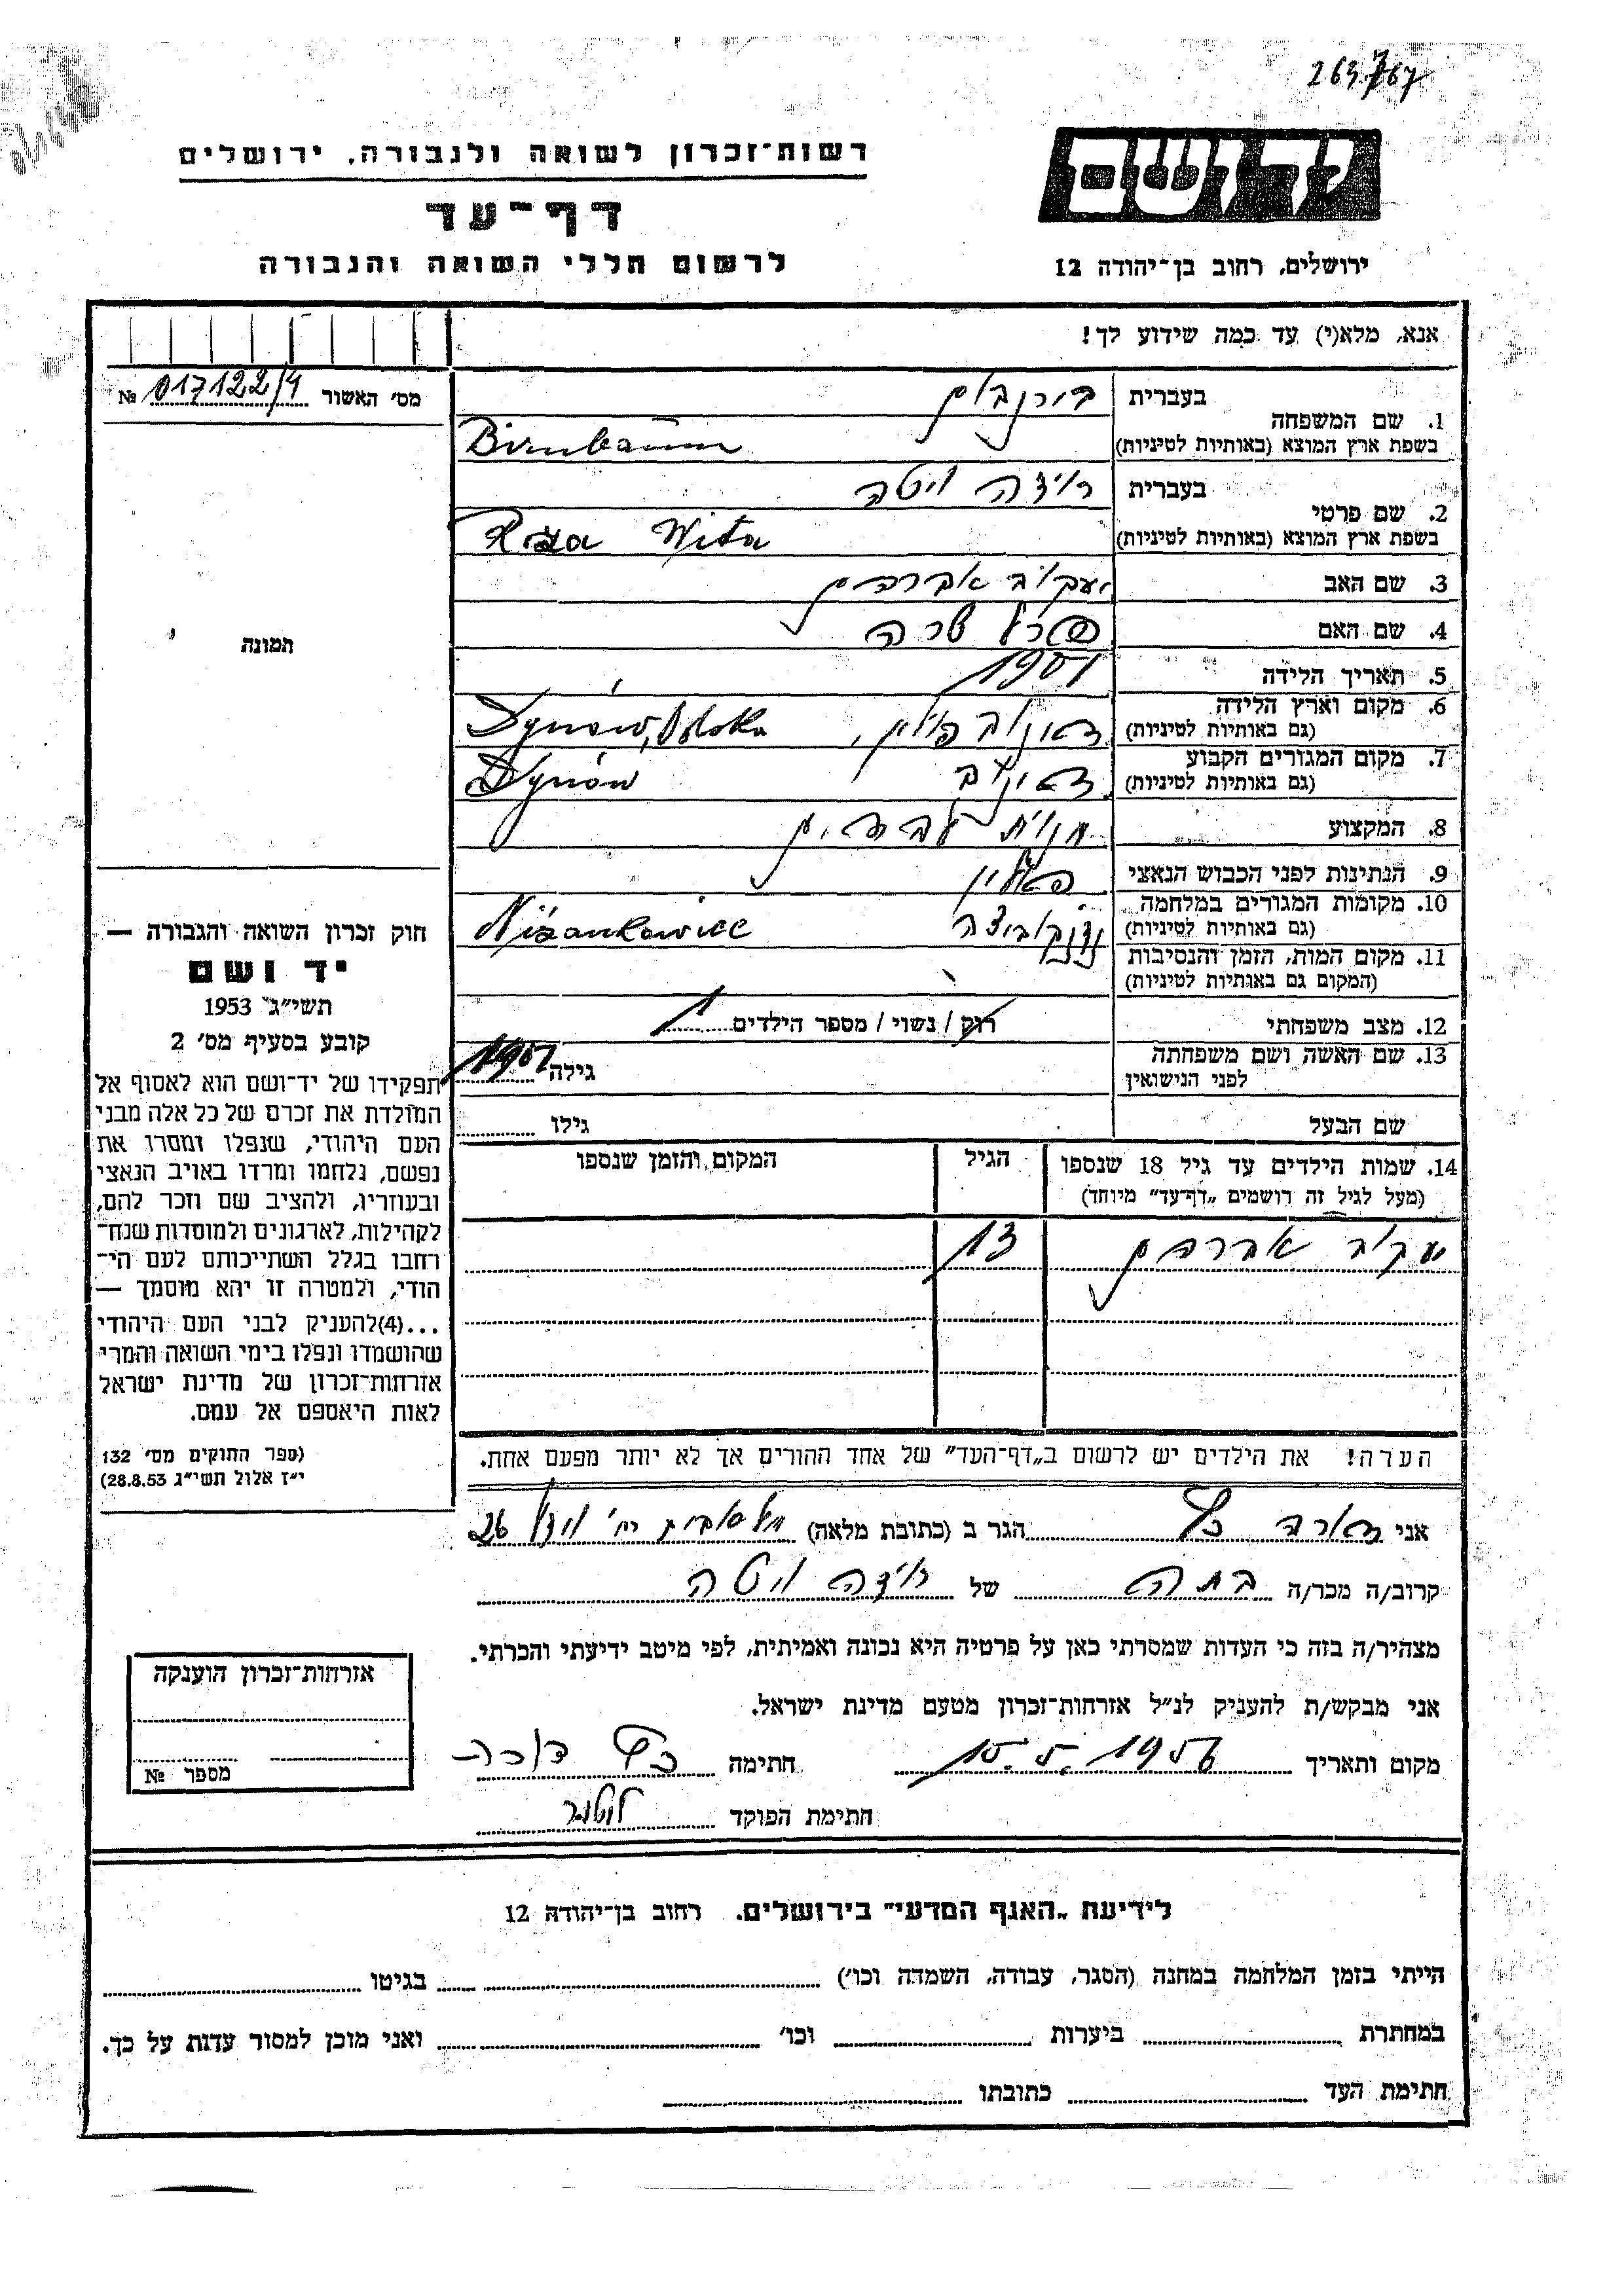 רשות־זכרון לשואה ולגבורה, ירושלים
יד ושם
דף־עד
לרשום חללי השואה והגבורה
ירושלים, רחוב בן־יהודה 12
אנא, מלא(י) עד כמה שידוע לך!
מס׳ האשור № 017122/4
תמונה
1. שם המשפחה בעברית בירנבוים
בשפת ארץ המוצא (באותיות לטיניות) Birnbaum
2. שם פרטי בעברית רוזה ויטה
בשפת ארץ המוצא (באותיות לטיניות) Roza Wita
3. שם האב יעקוב אברהם
4. שם האם שרה
5. תאריך הלידה 1901
6. מקום וארץ הלידה (גם באותיות לטיניות) דינוב פולין, Dynów, Polska
7. מקום המגורים הקבוע (גם באותיות לטיניות) דינוב Dynów
8. המקצוע חנות
9. הנתינות לפני הכבוש הנאצי פולין
10. מקומות המגורים במלחמה (גם באותיות לטיניות) Niżankowice
11. מקום המות, הזמן והנסיבות
(המקום גם באותיות לטיניות)
12. מצב משפחתי רוק / נשוי / מספר הילדים 1
13. שם האשה ושם משפחתה לפני הנישואין גילה 1901
שם הבעל גילו
14. שמות הילדים עד גיל 18 שנספו הגיל המקום והזמן שנספו
(מעל לגיל זה רושמים „דף־עד״ מיוחד)
יעקוב אברהם 13
הערה! את הילדים יש לרשום ב„דף־העד״ של אחד ההורים אך לא יותר מפעם אחת.
חוק זכרון השואה והגבורה —
יד ושם
תשי״ג 1953
קובע בסעיף מס׳ 2
תפקידו של יד־ושם הוא לאסוף אל
המולדת את זכרם של כל אלה מבני
העם היהודי, שנפלו ומסרו את
נפשם, נלחמו ומרדו באויב הנאצי
ובעוזריו, ולהציב שם וזכר להם,
לקהילות, לארגונים ולמוסדות שנח־
רחבו בגלל השתייכותם לעם הי־
הודי, ולמטרה זו יהא מוסמך —
...(4)להעניק לבני העם היהודי
שהושמדו ונפלו בימי השואה והמרי
אזרחות־זכרון של מדינת ישראל
לאות היאספם אל עמם.
(ספר החוקים מס׳ 132
י״ז אלול תשי״ג 28.8.53)
אני כץ הגר ב (כתובת מלאה) 26
קרוב/ה מכר/ה בתה של רוזה ויטה
מצהיר/ה בזה כי העדות שמסרתי כאן על פרטיה היא נכונה ואמיתית, לפי מיטב ידיעתי והכרתי.
אני מבקש/ת להעניק לנ״ל אזרחות־זכרון מטעם מדינת ישראל.
מקום ותאריך 10.5.1956 חתימה כץ
חתימת הפוקד
אזרחות־זכרון הוענקה
מספר №
לידיעת „האגף המדעי״ בירושלים, רחוב בן־יהודה 12
הייתי בזמן המלחמה במחנה (הסגר, עבודה, השמדה וכו׳) בגיטו
במחתרת ביערות וכו׳ ואני מוכן למסור עדות על כך.
חתימת העד כתובתו